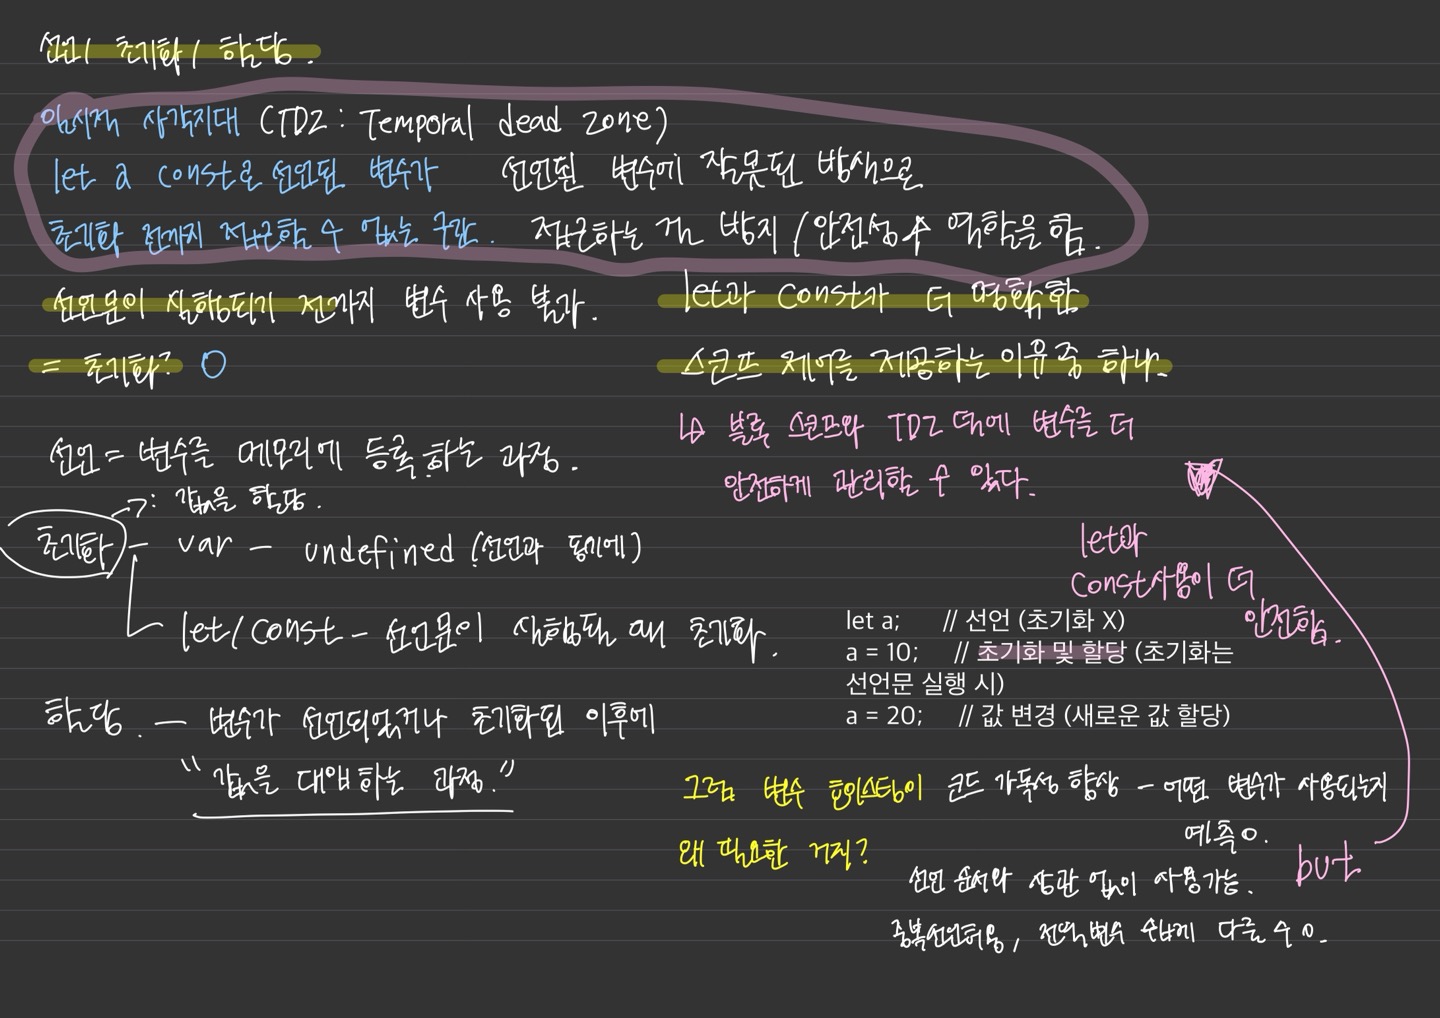 선언/ 초기화/ 할당.
임시적 사각지대 (TDZ : Temporal dead zone)
let a const로 선언된 변수가
초기화 전까지 접근할 수 없는 구간.
선언된 변수에 잘못된 방식으로
접근하는 걸 방지 / 안전성↑ 역할을 함.
선언문이 실행되기 전까지 변수 사용 불가.
= 초기화? O
let과 const가 더 명확한
스코프 제어를 제공하는 이유 중 하나.
↳ 블록 스코프와 TDZ 덕에 변수를 더
안전하게 관리할 수 있다.
선언 = 변수를 메모리에 등록하는 과정.
→: 값을 할당.
초기화 - var - undefined (선언과 동시에)
let/const - 선언문이 실행될 때 초기화.
할당. - 변수가 선언되었거나 초기화된 이후에
"값을 대입하는 과정."
let과
const사용이 더
안전함.
let a; // 선언 (초기화 X)
a = 10; // 초기화 및 할당 (초기화는
선언문 실행 시)
a = 20; // 값 변경 (새로운 값 할당)
그럼 변수 호이스팅이
왜 필요한 거지?
코드 가독성 향상 - 어떤 변수가 사용되는지
예측 O.
선언 순서와 상관 없이 사용가능.
but
중복선언허용, 전역변수 쉽게 다룰 수 O.